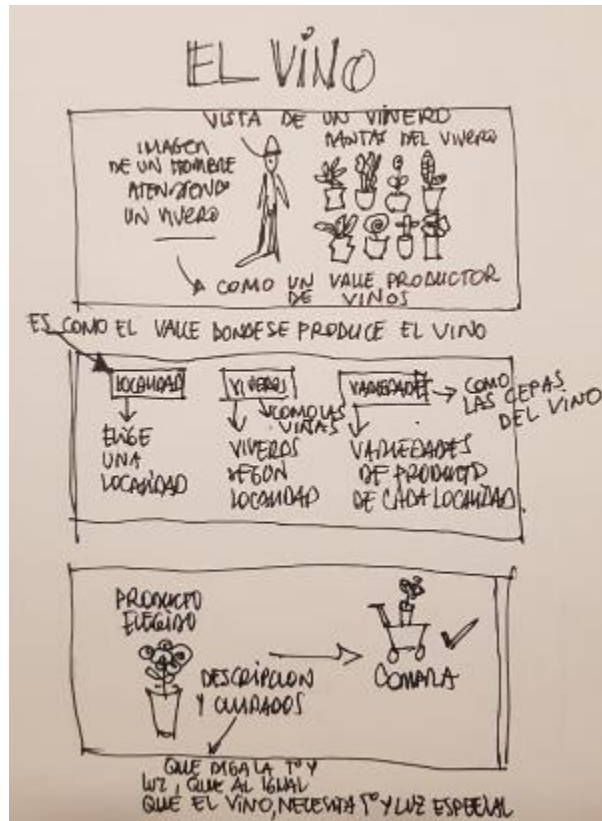 EL VINO
VISTA DE UN VIVERO
IMAGEN
DE UN HOMBRE
ATENDIENDO
UN VIVERO
PLANTAS DEL VIVERO
COMO UN VALLE PRODUCTOR
DE VINOS
ES COMO EL VALLE DONDE SE PRODUCE EL VINO
LOCALIDAD
ELIGE
UNA
LOCALIDAD
VIVEROS
COMO LAS
VIÑAS
VIVEROS
SEGÚN
LOCALIDAD
VARIEDADES
COMO
LAS CEPAS
DEL VINO
VARIEDADES
DE PRODUCTO
DE CADA LOCALIDAD
PRODUCTO
ELEGIDO
DESCRIPCION
Y CUIDADOS
COMPRA
QUE DIGA LA Tº Y
LUZ, QUE AL IGUAL
QUE EL VINO, NECESITA Tº Y LUZ ESPECIAL